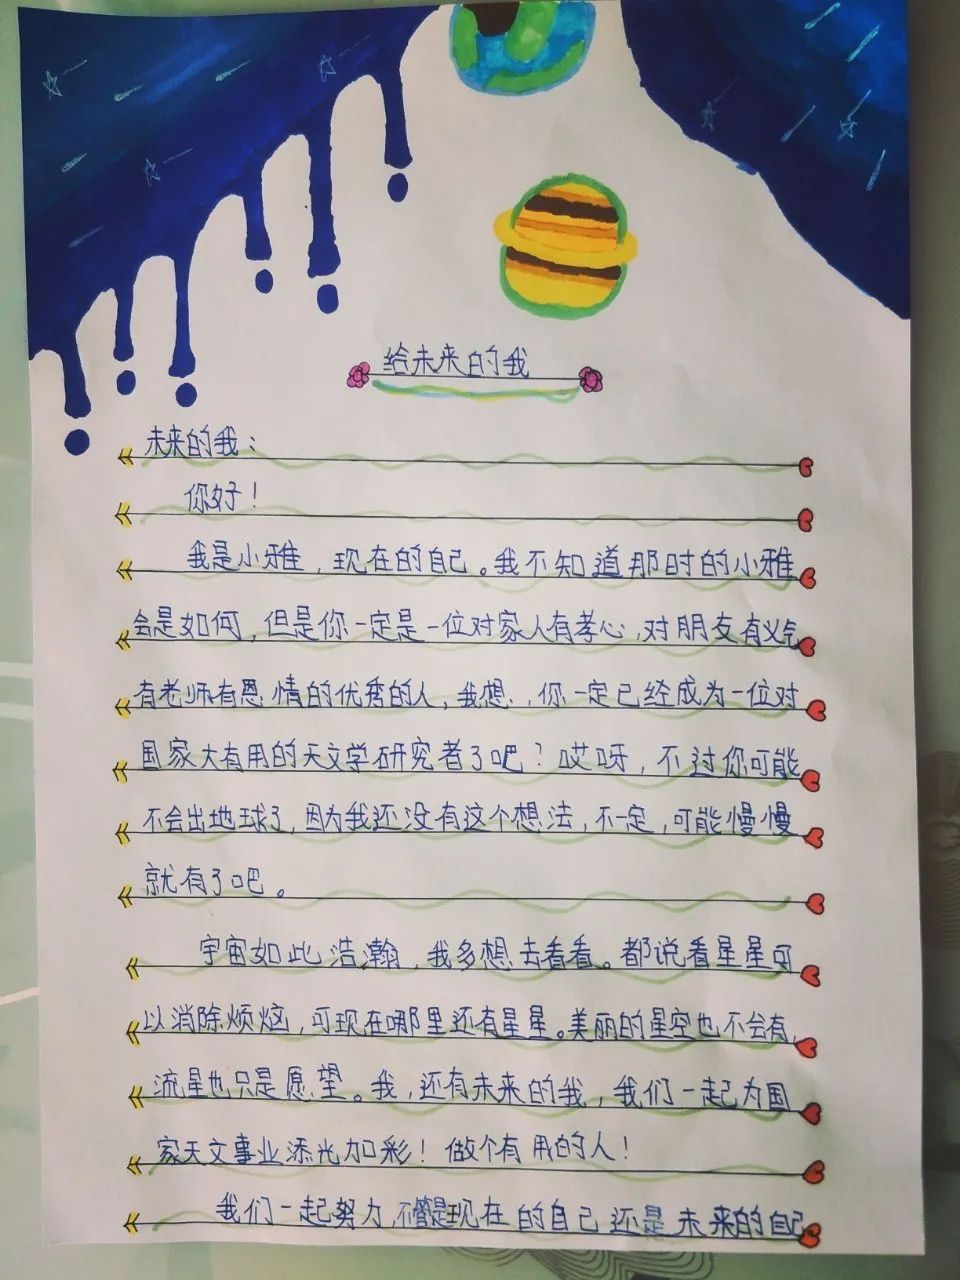 给未来的我
未来的我：
你好！
我是小雅，现在的自己。我不知道那时的小雅
会是如何，但是你一定是一位对家人有孝心，对朋友有义气
有老师有恩情的优秀的人，我想，你一定已经成为一位对
国家大有用的天文学研究者了吧？哎呀，不过你可能
不会出地球了，因为我还没有这个想法，不一定，可能慢慢
就有了吧。
宇宙如此浩瀚，我多想去看看。都说看星星可
以消除烦恼，可现在哪里还有星星。美丽的星空也不会有，
流星也只是愿望。我，还有未来的我，我们一起为国
家天文事业添光加彩！做个有用的人！
我们一起努力，不管是现在的自己还是未来的自己